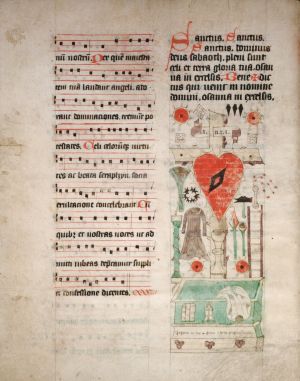 nū nostrū Per quē maiesta
tem tuā laudant angeli ado
rant dominaciones tremūt po
testates. Celi celorūque virtu
tes ac beata seraphyn socia
exultacione concelebrāt Cū
quibꝫ et nostras voces ut ad
mitti iubeas deprecamur suppli
ci confessione dicentes.
Sanctus. Sanctus.
Sanctus. dominus
deus sabaoth. pleni sunt
celi et terra gloria tua. osan
na in excelsis. Bene dic
tus qui venit in nomine
domini. osanna in excelsis.